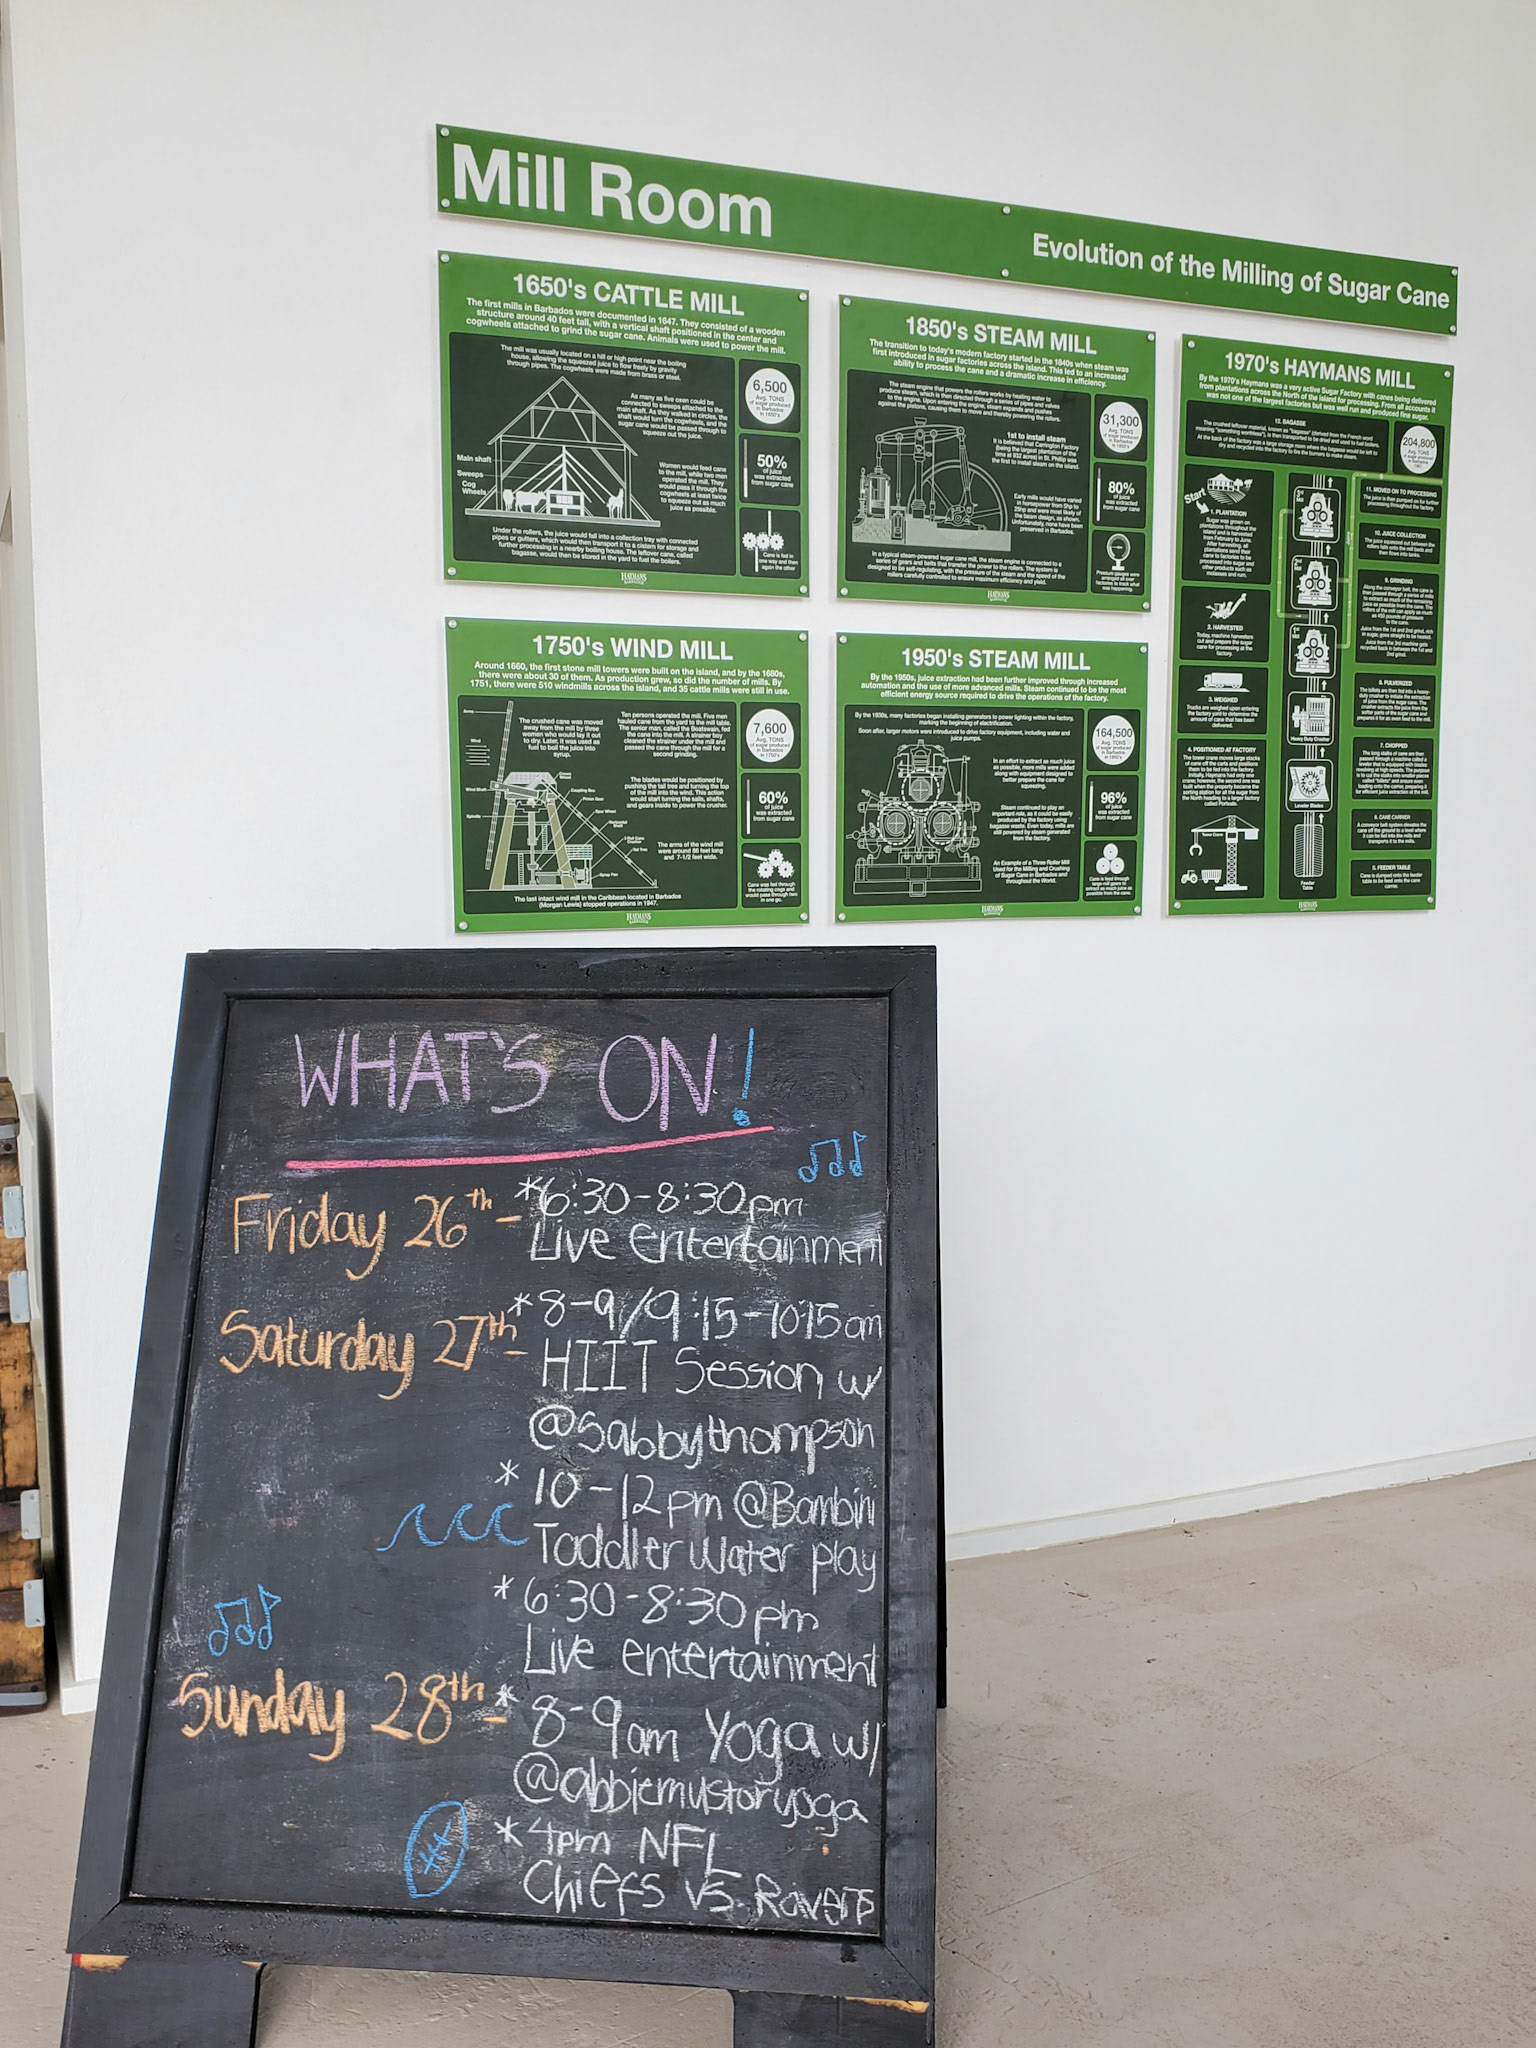 Mill Room
Evolution of the Milling of Sugar Cane
1650's CATTLE MILL
The first mills in Barbados were documented in 1647. They consisted of a wooden
structure around 40 feet tall, with a vertical shaft positioned in the center and
cogwheels attached to grind the sugar cane. Animals were used to power the mill.
The mill was usually located on a hill or high point near the boiling
house, allowing the squeezed juice to flow freely by gravity
through pipes. The cogwheels were made from brass or steel.
As many as five oxen could be
connected to sweeps attached to the
main shaft. As they walked in circles, the
shaft would turn the cogwheels, and the
sugar cane would be passed through to
squeeze out the juice.
Main shaft
Sweeps
Cog
Wheels
Women would feed cane
to the mill, while two men
operated the mill. They
would pass it through the
cogwheels at least twice
to squeeze out as much
juice as possible.
Under the rollers, the juice would fall into a collection tray with connected
pipes or gutters, which would then transport it to a cistern for storage and
further processing in a nearby boiling house. The leftover cane, called
bagasse, would then be stored in the yard to fuel the boilers.
6,500
Avg. TONS
of sugar produced
in Barbados
in 1650's
50%
of juice
was extracted
from sugar cane
Cane is fed in
one way and then
again the other
HAYMANS
BARBADOS
1850's STEAM MILL
The transition to today's modern factory started in the 1840s when steam was
first introduced in sugar factories across the island. This led to an increased
ability to process the cane and a dramatic increase in efficiency.
The steam engine that powers the rollers works by heating water to
produce steam, which is then directed through a series of pipes and valves
to the engine. Upon entering the engine, steam expands and pushes
against the pistons, causing them to move and thereby powering the rollers.
1st to install steam
It is believed that Carrington Factory
(being the largest plantation of the
time at 932 acre) in St. Phillip was
the first to install steam on the island.
Early mills would have varied
in horsepower from 5hp to
25hp and were most likely of
the beam design, as shown.
Unfortunately, none have been
preserved in Barbados.
In a typical steam-powered sugar cane mill, the steam engine is connected to a
series of gears and belts that transfer the power to the rollers. The system is
designed to be self-regulating, with the pressure of the steam and the speed of the
rollers carefully controlled to ensure maximum efficiency and yield.
31,300
Avg. TONS
of sugar produced
in Barbados
in 1850's
80%
of juice
was extracted
from sugar cane
Pressure gauges were
arranged all over
factories to track what
was happening.
HAYMANS
BARBADOS
1970's HAYMANS MILL
By the 1970's Haymans was a very active Sugar Factory with canes being delivered
from plantations across the North of the island for processing. From all accounts it
was not one of the largest factories but was well run and produced fine sugar.
12. BAGASSE
The crushed leftover material, known as "bagasse" (derived from the French word
meaning "something worthless"), is then transported to be dried and used to fuel boilers.
At the back of the factory was a large storage room where the bagasse would be left to
dry and recycled into the factory to fire the burners to make steam.
204,800
Avg. TONS
of sugar produced
in Barbados
Start
1. PLANTATION
Sugar was grown on
plantations throughout the
island and is harvested
from February to June.
After harvesting, all
plantations send their
cane to factories to be
processed into sugar and
other products such as
molasses and rum.
2. HARVESTED
Today, machine harvesters
cut and prepare the sugar
cane for processing at the
factory.
3. WEIGHED
Trucks are weighed upon entering
the factory yard to determine the
amount of cane that has been
delivered.
4. POSITIONED AT FACTORY
The tower crane moves large stacks
of cane off the carts and positions
them to be fed into the factory.
Initially, Haymans had only one
crane; however, the second one was
built when the property became the
sorting station for all the sugar from
the North heading to a larger factory
called Portvale.
Tower Crane
3rd
Mill
2nd
Mill
1st
Mill
Heavy Duty Crusher
Leveler Blades
Feeder
Table
11. MOVED ON TO PROCESSING
The juice is then pumped on for further
processing throughout the factory.
10. JUICE COLLECTION
The juice squeezed out between the
rollers falls onto the mill beds and
then flows into tanks.
9. GRINDING
Along the conveyor belt, the cane is
then passed through a series of mills
to extract as much of the remaining
juice as possible from the cane. The
rollers of the mill can apply as much
as 450 pounds of pressure
to the cane.
Juice from the 1st and 2nd grind, rich in
sugar, goes straight to be heated.
Juice from the 3rd machine gets
recycled back in between the 1st and
2nd grind.
8. PULVERIZED
The billets are then fed into a heavy-
duty crusher to initiate the extraction
of juice from the sugar cane. The
crusher extracts the juice from the
softer parts of the sugar cane and
prepares it for an even feed to the mill.
7. CHOPPED
The long stalks of cane are then
passed through a machine called a
leveler that is equipped with blades
spinning at high speeds. The purpose
is to cut the stalks into smaller pieces
called "billets" and ensure even
loading onto the carrier, preparing it
for efficient juice extraction at the mill.
6. CANE CARRIER
A conveyor belt system elevates the
cane off the ground to a level where
it can be fed into the mills and
transports it to the mills.
5. FEEDER TABLE
Cane is dumped onto the feeder
table to be feed onto the cane
carrier.
HAYMANS
BARBADOS
1750's WIND MILL
Around 1660, the first stone mill towers were built on the island, and by the 1680s,
there were about 30 of them. As production grew, so did the number of mills. By
1751, there were 510 windmills across the island, and 35 cattle mills were still in use.
Arms
Wind
Wind Shaft
Spindle
The crushed cane was moved
away from the mill by three
women who would lay it out
to dry. Later, it was used as
fuel to boil the juice into
syrup.
Ten persons operated the mill. Five men
hauled cane from the yard to the mill table.
The senior man, called the Boatswain, fed
the cane into the mill. A strainer boy
cleaned the strainer under the mill and
passed the cane through the mill for a
second grinding.
The blades would be positioned by
pushing the tail tree and turning the top
of the mill into the wind. This action
would start turning the sails, shafts,
and gears inside to power the crusher.
Spur Wheel
Horizontal
Shaft
3 Roll Cane
Crusher
Tail Tree
Syrup Pan
The arms of the wind mill
were around 85 feet long
and 7-1/2 feet wide.
The last intact wind mill in the Caribbean located in Barbados
(Morgan Lewis) stopped operations in 1947.
7,600
Avg. TONS
of sugar produced
in Barbados
in 1750's
60%
of juice
was extracted
from sugar cane
Cane was fed through
the rotating cogs and
would pass through two
in one go.
HAYMANS
BARBADOS
1950's STEAM MILL
By the 1950s, juice extraction had been further improved through increased
automation and the use of more advanced mills. Steam continued to be the most
efficient energy source required to drive the operations of the factory.
By the 1930s, many factories began installing generators to power lighting within the factory,
marking the beginning of electrification.
Soon after, larger motors were introduced to drive factory equipment, including water and
juice pumps.
In an effort to extract as much juice
as possible, more mills were added
along with equipment designed to
better prepare the cane for
squeezing.
Steam continued to play an
important role, as it could be easily
produced by the factory using
bagasse waste. Even today, mills are
still powered by steam generated
from the factory.
An Example of a Three Roller Mill
Used for the Milling and Crushing
of Sugar Cane in Barbados and
throughout the World.
164,500
Avg. TONS
of sugar produced
in Barbados
in 1950's
96%
of juice
was extracted
from sugar cane
Cane is feed through
large mill gears to
extract as much juice as
possible from the cane.
HAYMANS
BARBADOS
WHAT'S ON!
Friday 26th - *6:30-8:30pm
Live Entertainment
Saturday 27th - *8-9/9:15-10:15am
HIIT Session w/
@sabbythompson
* 10-12pm @Bambini
Toddler Water play
* 6:30-8:30pm
Live entertainment
Sunday 28th - * 8-9am Yoga w/
@abbiemustoryoga
* 4pm NFL
Chiefs vs. Ravens